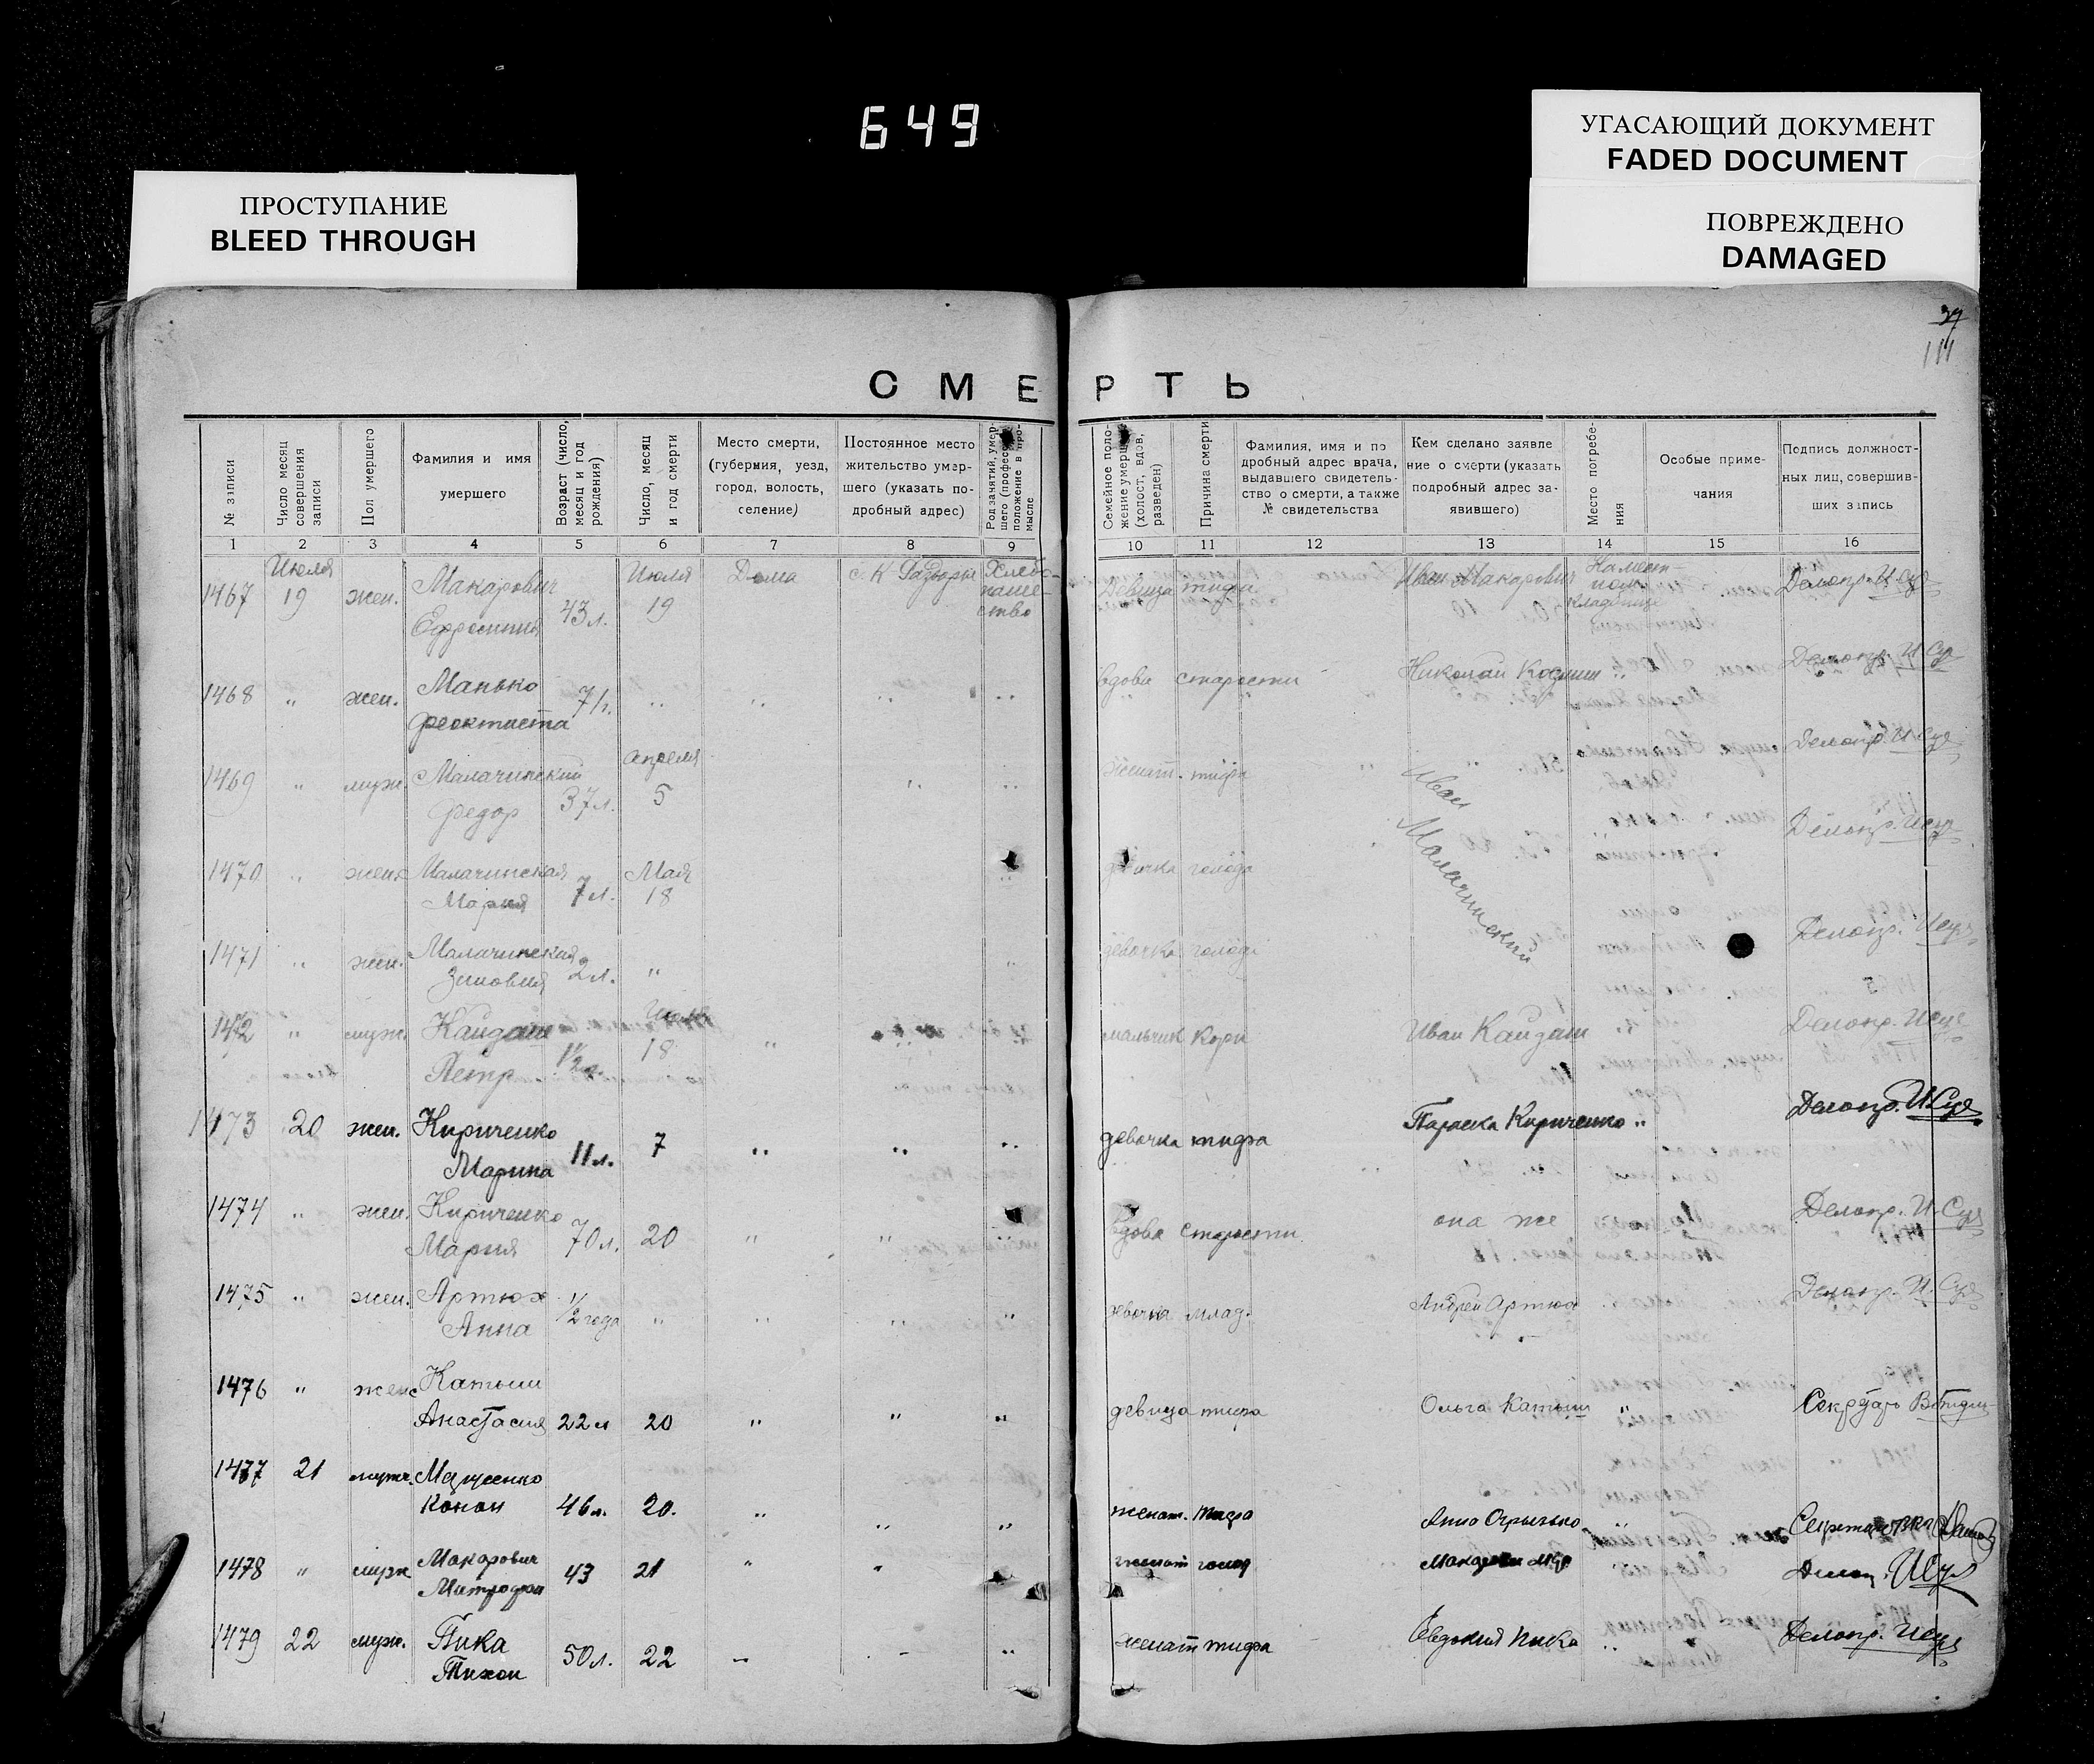 649
УГАСАЮЩИЙ ДОКУМЕНТ
FADED DOCUMENT
ПРОСТУПАНИЕ
BLEED THROUGH
ПОВРЕЖДЕНО
DAMAGED
111
СМЕРТЬ
№ записи
Число месяц совершения записи
Пол умершего
Фамилия и имя умершего
Возраст (число, месяц и год рождения)
Число, месяц и год смерти
Место смерти, (губерния, уезд, город, волость, селение)
Постоянное место жительство умершего (указать подробный адрес)
Род занятий, умершего положение в промысле
Семейное положение умершего (холост, вдов, разведен)
Причина смерти
Фамилия, имя и подробный адрес врача, выдавшего свидетельство о смерти, а также № свидетельства
Кем сделано заявление о смерти (указать подробный адрес заявившего)
Место погребения
Особые примечания
Подпись должностных лиц, совершивших запись
1 2 3 4 5 6 7 8 9 10 11 12 13 14 15 16
1467 Июля 19 жен. Макарович Ефросиния 43 л. Июля 19 Дома Хлебопашество Девица тифа Иван Макарович Делопр.
1468 " жен. Манько Феоктиста 71. " " " " вдова старости Николай " Делопр.
1469 " муж. Малачинский Федор 37 л. апреля 5 " " женат. тифа Иван Малачинский Делопр.
1470 " женс Малачинская Мария 7 л. Мая 18 " девочка голода Делопр.
1471 " жен. Малачинская Зиновия 2 л. " " девочка голода Делопр.
1472 " муж. Кайдаш Петр 1½ г. 18 " мальчик кори Иван Кайдаш Делопр.
1473 20 жен. Кириченко Марина 11 л. 7 " " " девочка тифа Параска Кириченко " Делопр.
1474 " жен. Кириченко Мария 70 л. 20 " " вдова старости она же Делопр.
1475 " жен. Артюх Анна ½ года " " " " девочка млад. Андрей Артюх Делопр.
1476 " женс Катыш Анастасия 22 л 20 " " " девица тифа Ольга Катыш " Секретарь
1477 21 муж. Конон 46 л. 20. " " " женат. тифа Анна " Секретарь
1478 " муж Макарович Митрофан 43 21 " " женат голод Делоп.
1479 22 муж. Пика Тихон 50 л. 22 " - " женат тифа Евдокия Пика " Делопр.